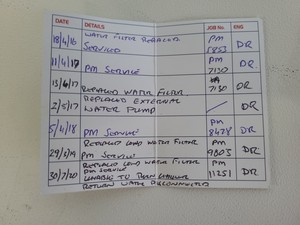 DATE DETAILS JOB No. ENG
18/4/16 WATER FILTER REPLACED PM
SERVICED 5853 DR
11/4/17 PM SERVICE PM 7130 DR
13/4/17 REPLACED WATER FILTER 7130 DR
2/5/17 REPLACED EXTERNAL
WATER PUMP / DR
5/4/18 PM SERVICE PM 8428 DR
REPLACED WATER FILTER PM
29/5/19 PM SERVICE 9803 DR
REPLACED WATER FILTER PM
30/7/20 PM SERVICE 11251 DR
UNABLE TO
RETURN WATER DISCONNECTED